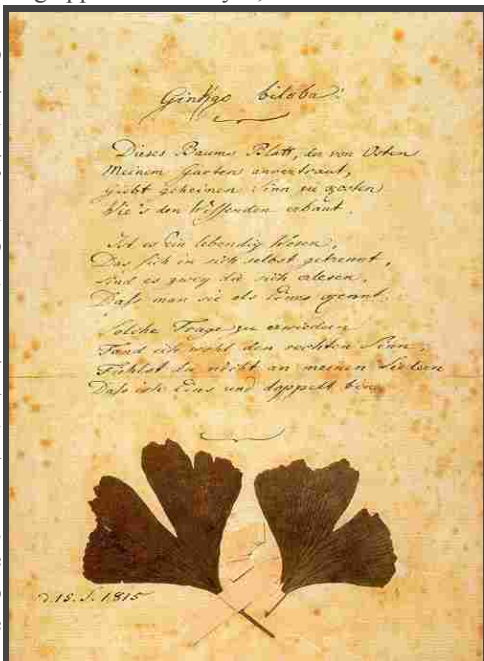 Ginkgo biloba.
Dieses Baums Blatt, der von Osten
Meinem Garten anvertraut,
Giebt geheimen Sinn zu kosten
Wie's den Wissenden erbaut.
Ist es Ein lebendig Wesen,
Das sich in sich selbst getrennt,
Sind es zwey die sich erlesen,
Daß man sie als Eines kennt.
Solche Frage zu erwiedern
Fand ich wohl den rechten Sinn;
Fühlst du nicht an meinen Liedern
Daß ich Eins und doppelt bin.
d. 15. S. 1815